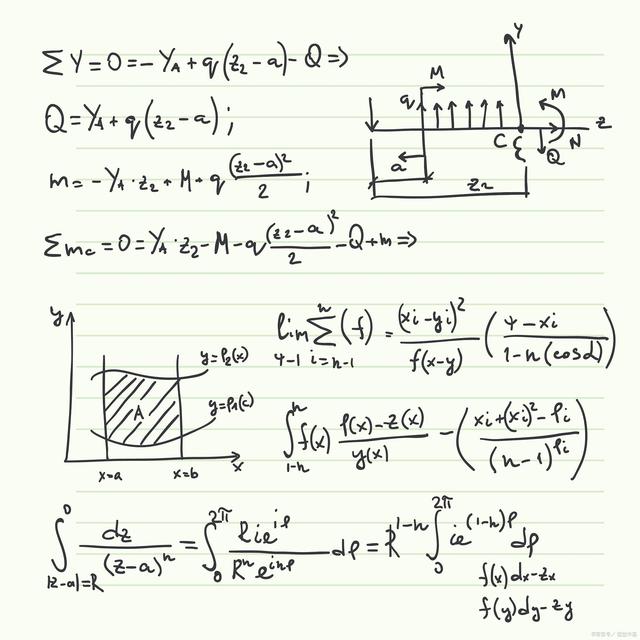 ΣY=0=-Y_A+q(z₂-a)-Q=>
Q=Y_A+q(z₂-a);
m=-Y_A·z₂+M+q (z₂-a)²/2;
Σm_c=0=Y_A·z₂-M-q (z₂-a)²/2 -Q+m=>
Y
M
q
M
z
C
Q
N
a
z₂
y
y=f₂(x)
A
y=f₁(c)
x=a
x=b
x
lim Σ (f) = (xi-yi)²/f(x-y) (4-xi/1-n(cosd))
n
4-1 i=n-1
∫ₗ₋ₙⁿ f(x) f(x)-z(x)/y(x) - (xi+(xi)²-li/(n-1)^li)
∫_{|z-a|=R}^0 dz/(z-a)ⁿ = ∫₀^{2π} Rie^{iρ}/Rⁿe^{inρ} dρ = R^{1-n} ∫₀^{2π} ie^{(1-n)ρ} dρ
f(x)dx-zx
f(y)dy-zy